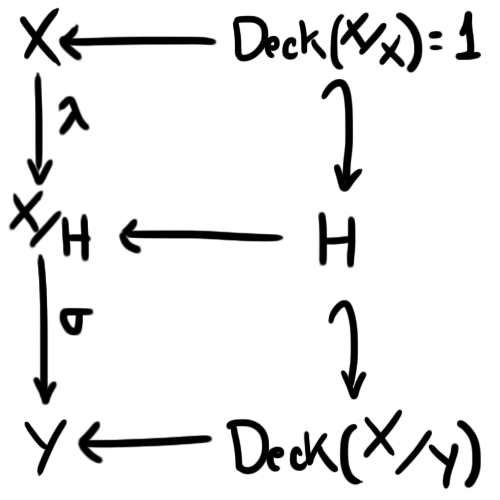 X Deck(X/X)=1
λ
X/H H
σ
Y Deck(X/Y)